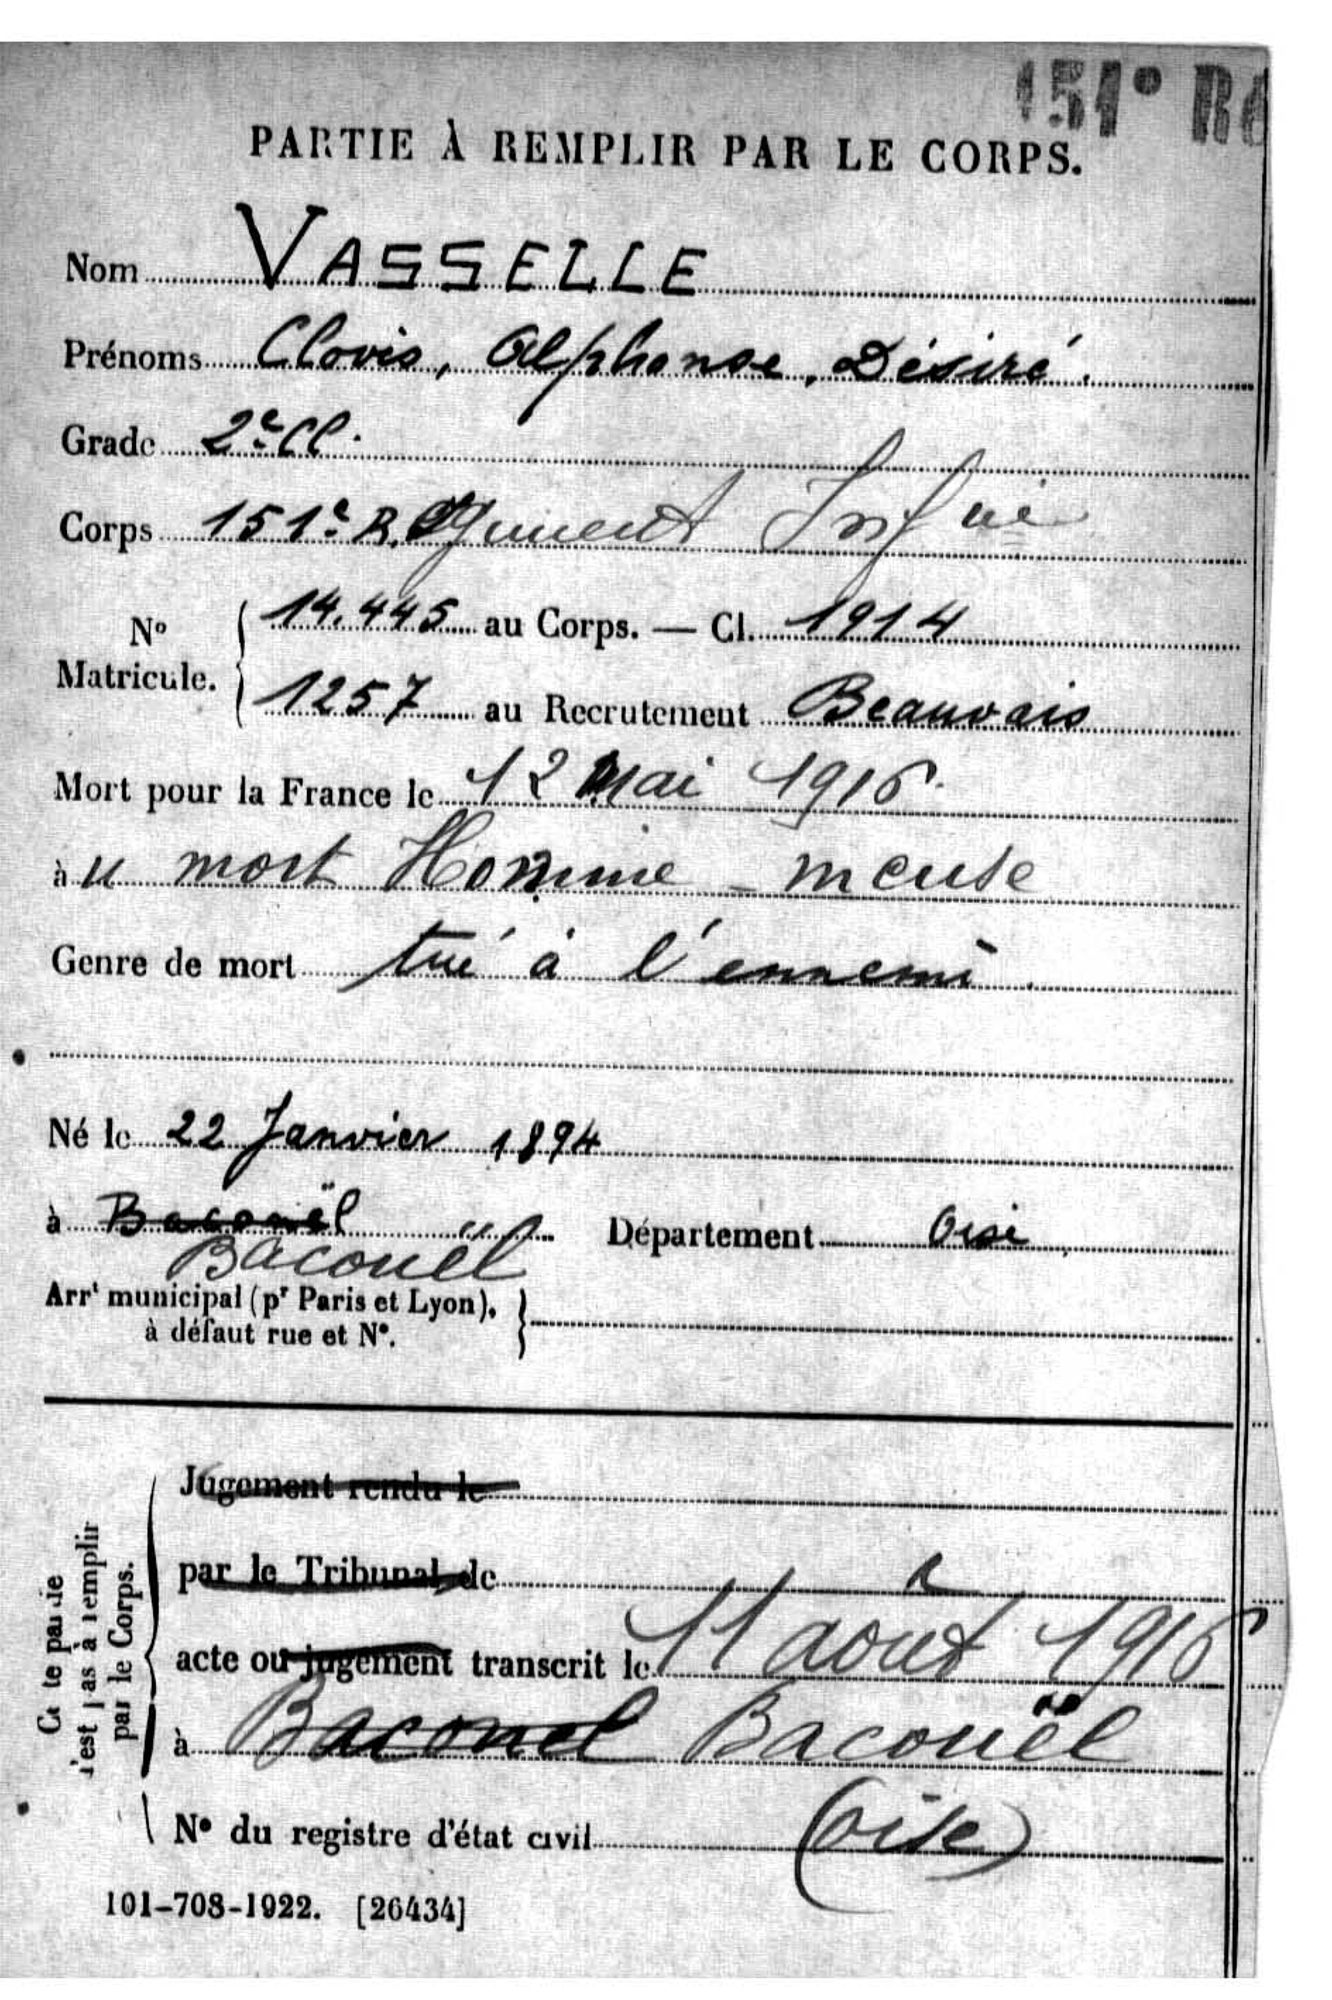 151° Ré
PARTIE À REMPLIR PAR LE CORPS.
Nom VASSELLE
Prénoms Clovis, Alphonse, Désiré.
Grade 2e Cl.
Corps 151e Régiment Inf rie
No Matricule. { 14.445 au Corps. — Cl. 1914
1257 au Recrutement Beauvais
Mort pour la France le 12 Mai 1916.
à u mort Homme - meuse
Genre de mort tué à l'ennemi.
Né le 22 Janvier 1894
à Baconël Département Oise
Bacouël
Arrt municipal (pr Paris et Lyon),
à défaut rue et No.
Jugement rendu le
par le Tribunal de
acte ou jugement transcrit le 11 août 1916
à Baconel Bacouël
No du registre d'état civil (Oise)
Cette partie
n'est pas à remplir
par le Corps.
101-708-1922. [26434]